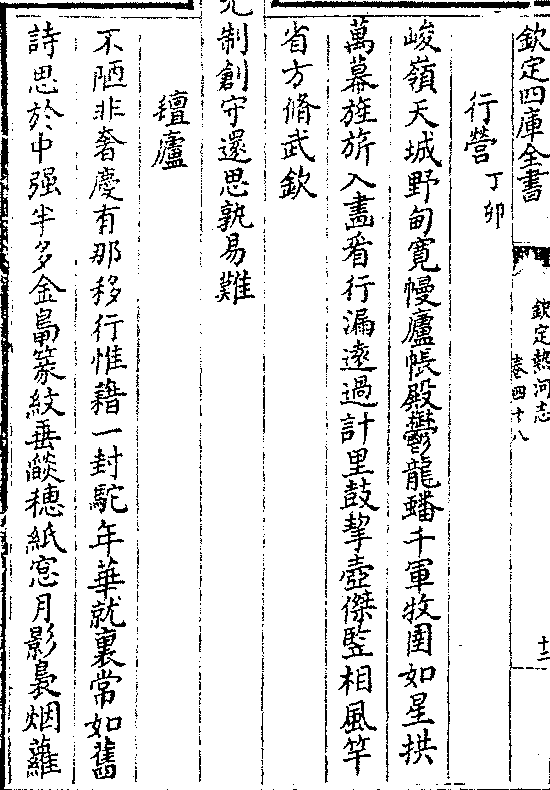 欽定四庫全書
欽定熱河志
卷四十八
十二
行營丁卯
峻嶺天城野甸寛幔廬帳殿鬱龍蟠千軍牧圉如星拱
萬幕旌旂入畫看行漏遠過計里鼓挈壺傑監相風竿
省方脩武欽
制創守還思孰易難
氊廬
不陋非奢慶有那移行惟藉一封駝年華就裏常如舊
詩思於中强半多金鳬篆紋垂燄穗紙窓月影裊烟蘿